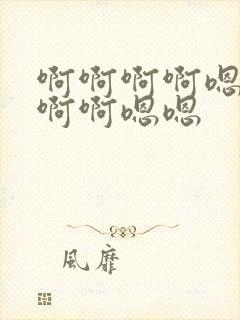 啊啊啊啊嗯
啊啊嗯嗯
風靡